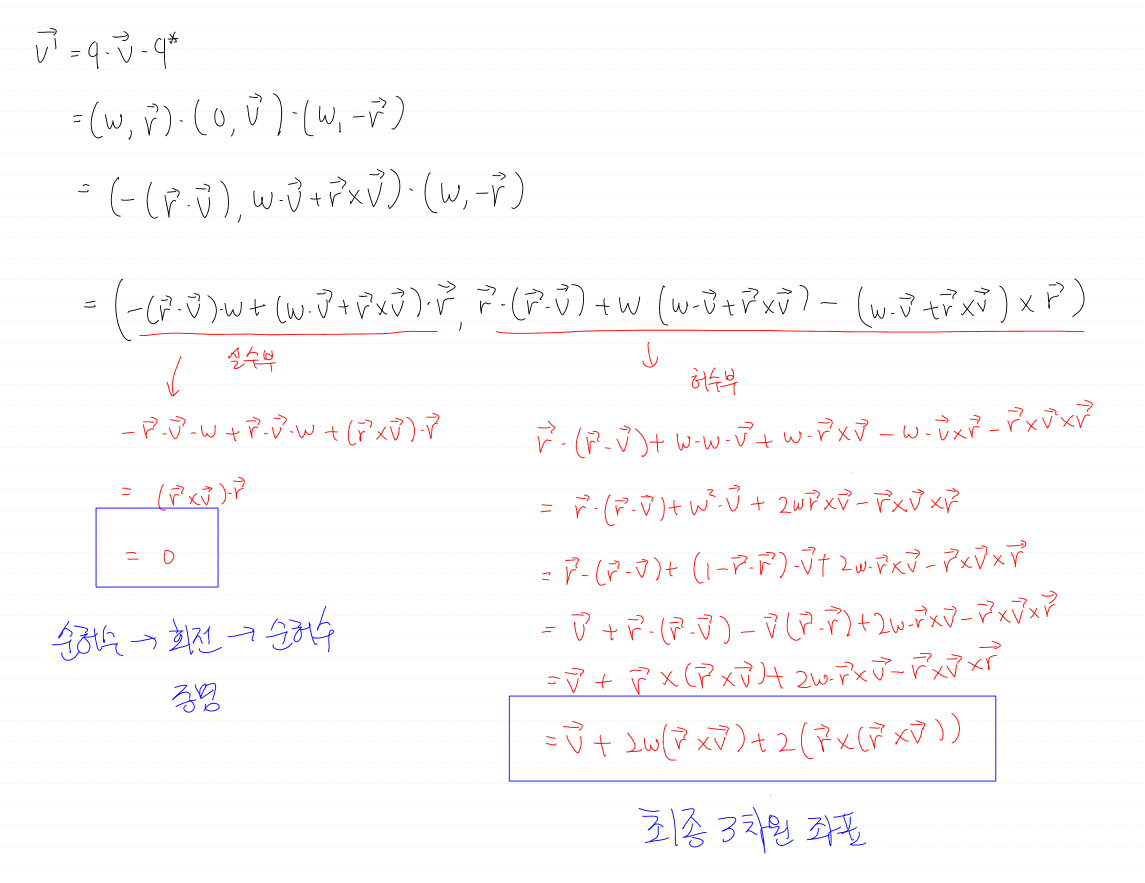 v⃗' = q·v⃗-q*
= (w, r⃗)·(0, v⃗)·(w, -r⃗)
= (-(r⃗·v⃗), w·v⃗+r⃗×v⃗)·(w, -r⃗)
= (-(r⃗·v⃗)·w+(w·v⃗+r⃗×v⃗)·r⃗, r⃗·(r⃗·v⃗)+w(w·v⃗+r⃗×v⃗) - (w·v⃗+r⃗×v⃗)×r⃗)
실수부
-r⃗·v⃗·w+r⃗·v⃗·w+(r⃗×v⃗)·r⃗
= (r⃗×v⃗)·r⃗
= 0
순허수 → 회전 → 순허수
증명
허수부
r⃗·(r⃗·v⃗)+w·w·v⃗+w·r⃗×v⃗-w·v⃗×r⃗-r⃗×v⃗×r⃗
= r⃗·(r⃗·v⃗)+w²·v⃗+2wr⃗×v⃗-r⃗×v⃗×r⃗
= r⃗·(r⃗·v⃗)+(1-r⃗·r⃗)·v⃗+2w·r⃗×v⃗-r⃗×v⃗×r⃗
= v⃗+r⃗·(r⃗·v⃗)-v⃗(r⃗·r⃗)+2w·r⃗×v⃗-r⃗×v⃗×r⃗
= v⃗+r⃗×(r⃗×v⃗)+2w·r⃗×v⃗-r⃗×v⃗×r⃗
= v⃗+2w(r⃗×v⃗)+2(r⃗×(r⃗×v⃗))
최종 3차원 좌표